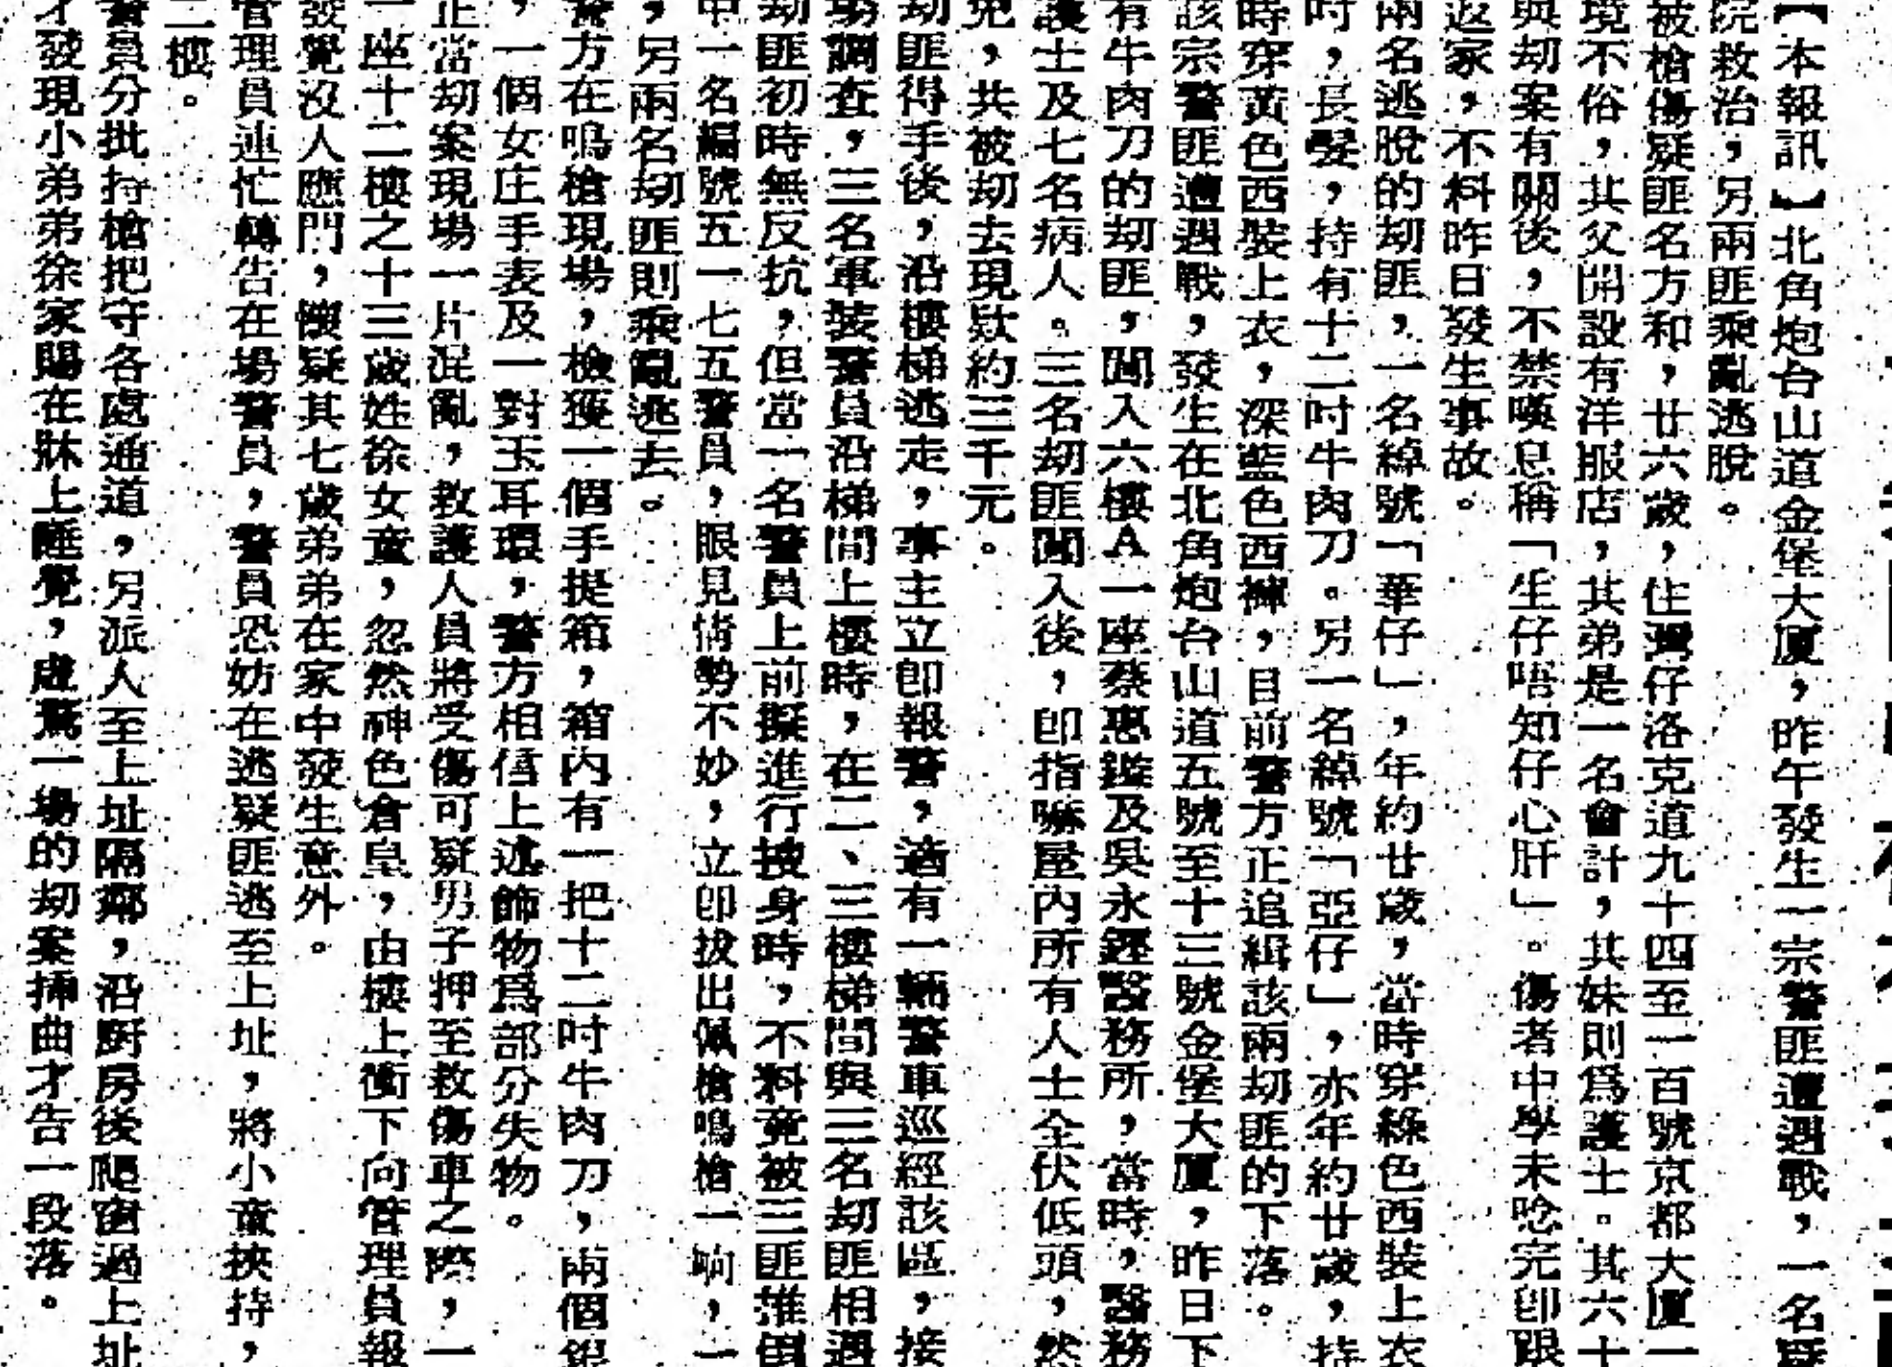 【本報訊】北角炮台山道金堡大厦，昨午發生一宗警匪遭遇戰，一名疑
院救治，另兩匪乘亂逃脫。
被槍傷疑匪名方和，廿六歲，住灣仔洛克道九十四至一百號京都大厦一
境不俗，其父開設有洋服店，其弟是一名會計，其妹則爲護士。其六十
與刧案有關後，不禁嘆息稱「生仔唔知仔心肝」。傷者中學未唸完卽跟
返家，不料昨日發生事故。
兩名逃脫的刧匪，一名綽號「華仔」，年約廿歲，當時穿綠色西裝上衣
吋，長髮，持有十二吋牛肉刀。另一名綽號「亞仔」，亦年約廿歲，持
時穿黃色西裝上衣，深藍色西褲，目前警方正追緝該兩刧匪的下落。
該宗警匪遭遇戰，發生在北角炮台山道五號至十三號金堡大厦，昨日下
有牛肉刀的刧匪，闖入六樓A一座蔡惠鎰及吳永鏗醫務所，當時，醫務
護士及七名病人。三名刧匪闖入後，卽指嚇屋內所有人士全伏低頭，然
免，共被刧去現欵約三千元。
刧匪得手後，沿樓梯逃走，事主立卽報警，適有一輛警車巡經該區，接
場調查，三名軍裝警員沿梯間上樓時，在二、三樓梯間與三名刧匪相遇
刧匪初時無反抗，但當一名警員上前擬進行搜身時，不料竟被三匪推倒
中一名編號五一七五警員，眼見情勢不妙，立卽拔出佩槍鳴槍一响，一
，另兩名刧匪則乘亂逃去。
警方在鳴槍現場，檢獲一個手提箱，箱內有一把十二吋牛肉刀，兩個銀
，一個女庄手表及一對玉耳環，警方相信上述飾物爲部分失物。
正當刧案現場一片混亂，救護人員將受傷可疑男子押至救傷車之際，一
一座十二樓之十三歲姓徐女童，忽然神色倉皇，由樓上衝下向管理員報
發覺沒人應門，懷疑其七歲弟弟在家中發生意外。
管理員連忙轉告在場警員，警員恐妨在逃疑匪逃至上址，將小童挾持，
二樓。
警員分批持槍把守各處通道，另派人至上址隔鄰，沿厨房後爬窗過上址
才發現小弟弟徐家賜在牀上睡覺，虛驚一場的刧案揷曲才告一段落。